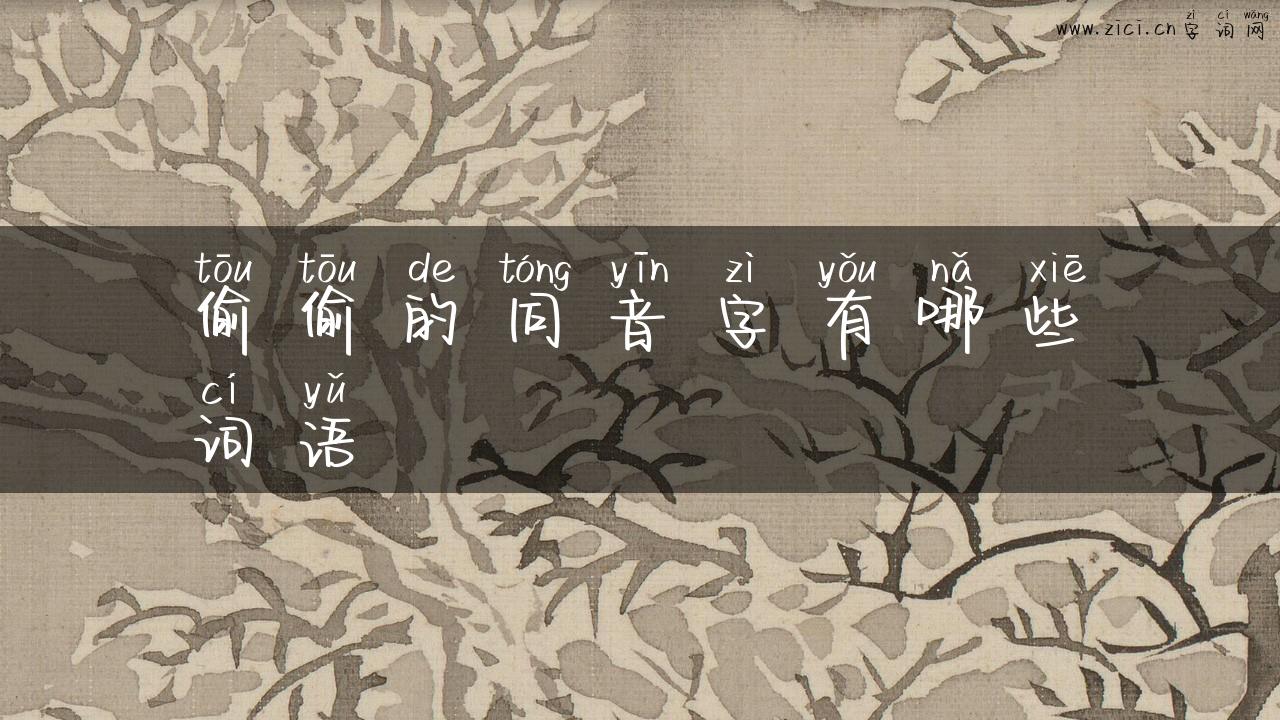 zì cí wǎng
www.zici.cn字词网
tōu tōu de tóng yīn zì yǒu nǎ xiē
偷偷的同音字有哪些
cí yǔ
词语